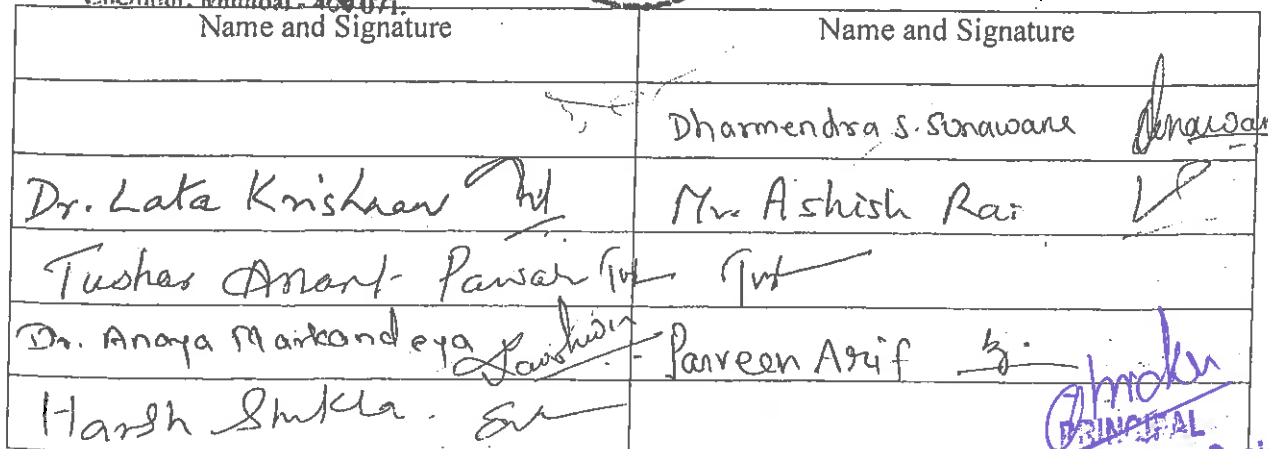 Mumbai - 400 071.
Name and Signature Name and Signature
Dharmendra S. Sonawane
Dr. Lata Krishnan Mr. Ashish Rai
Tushar Anant Pawar
Dr. Anaya Markandeya Parveen Arif
Harsh Shukla.
PRINCIPAL